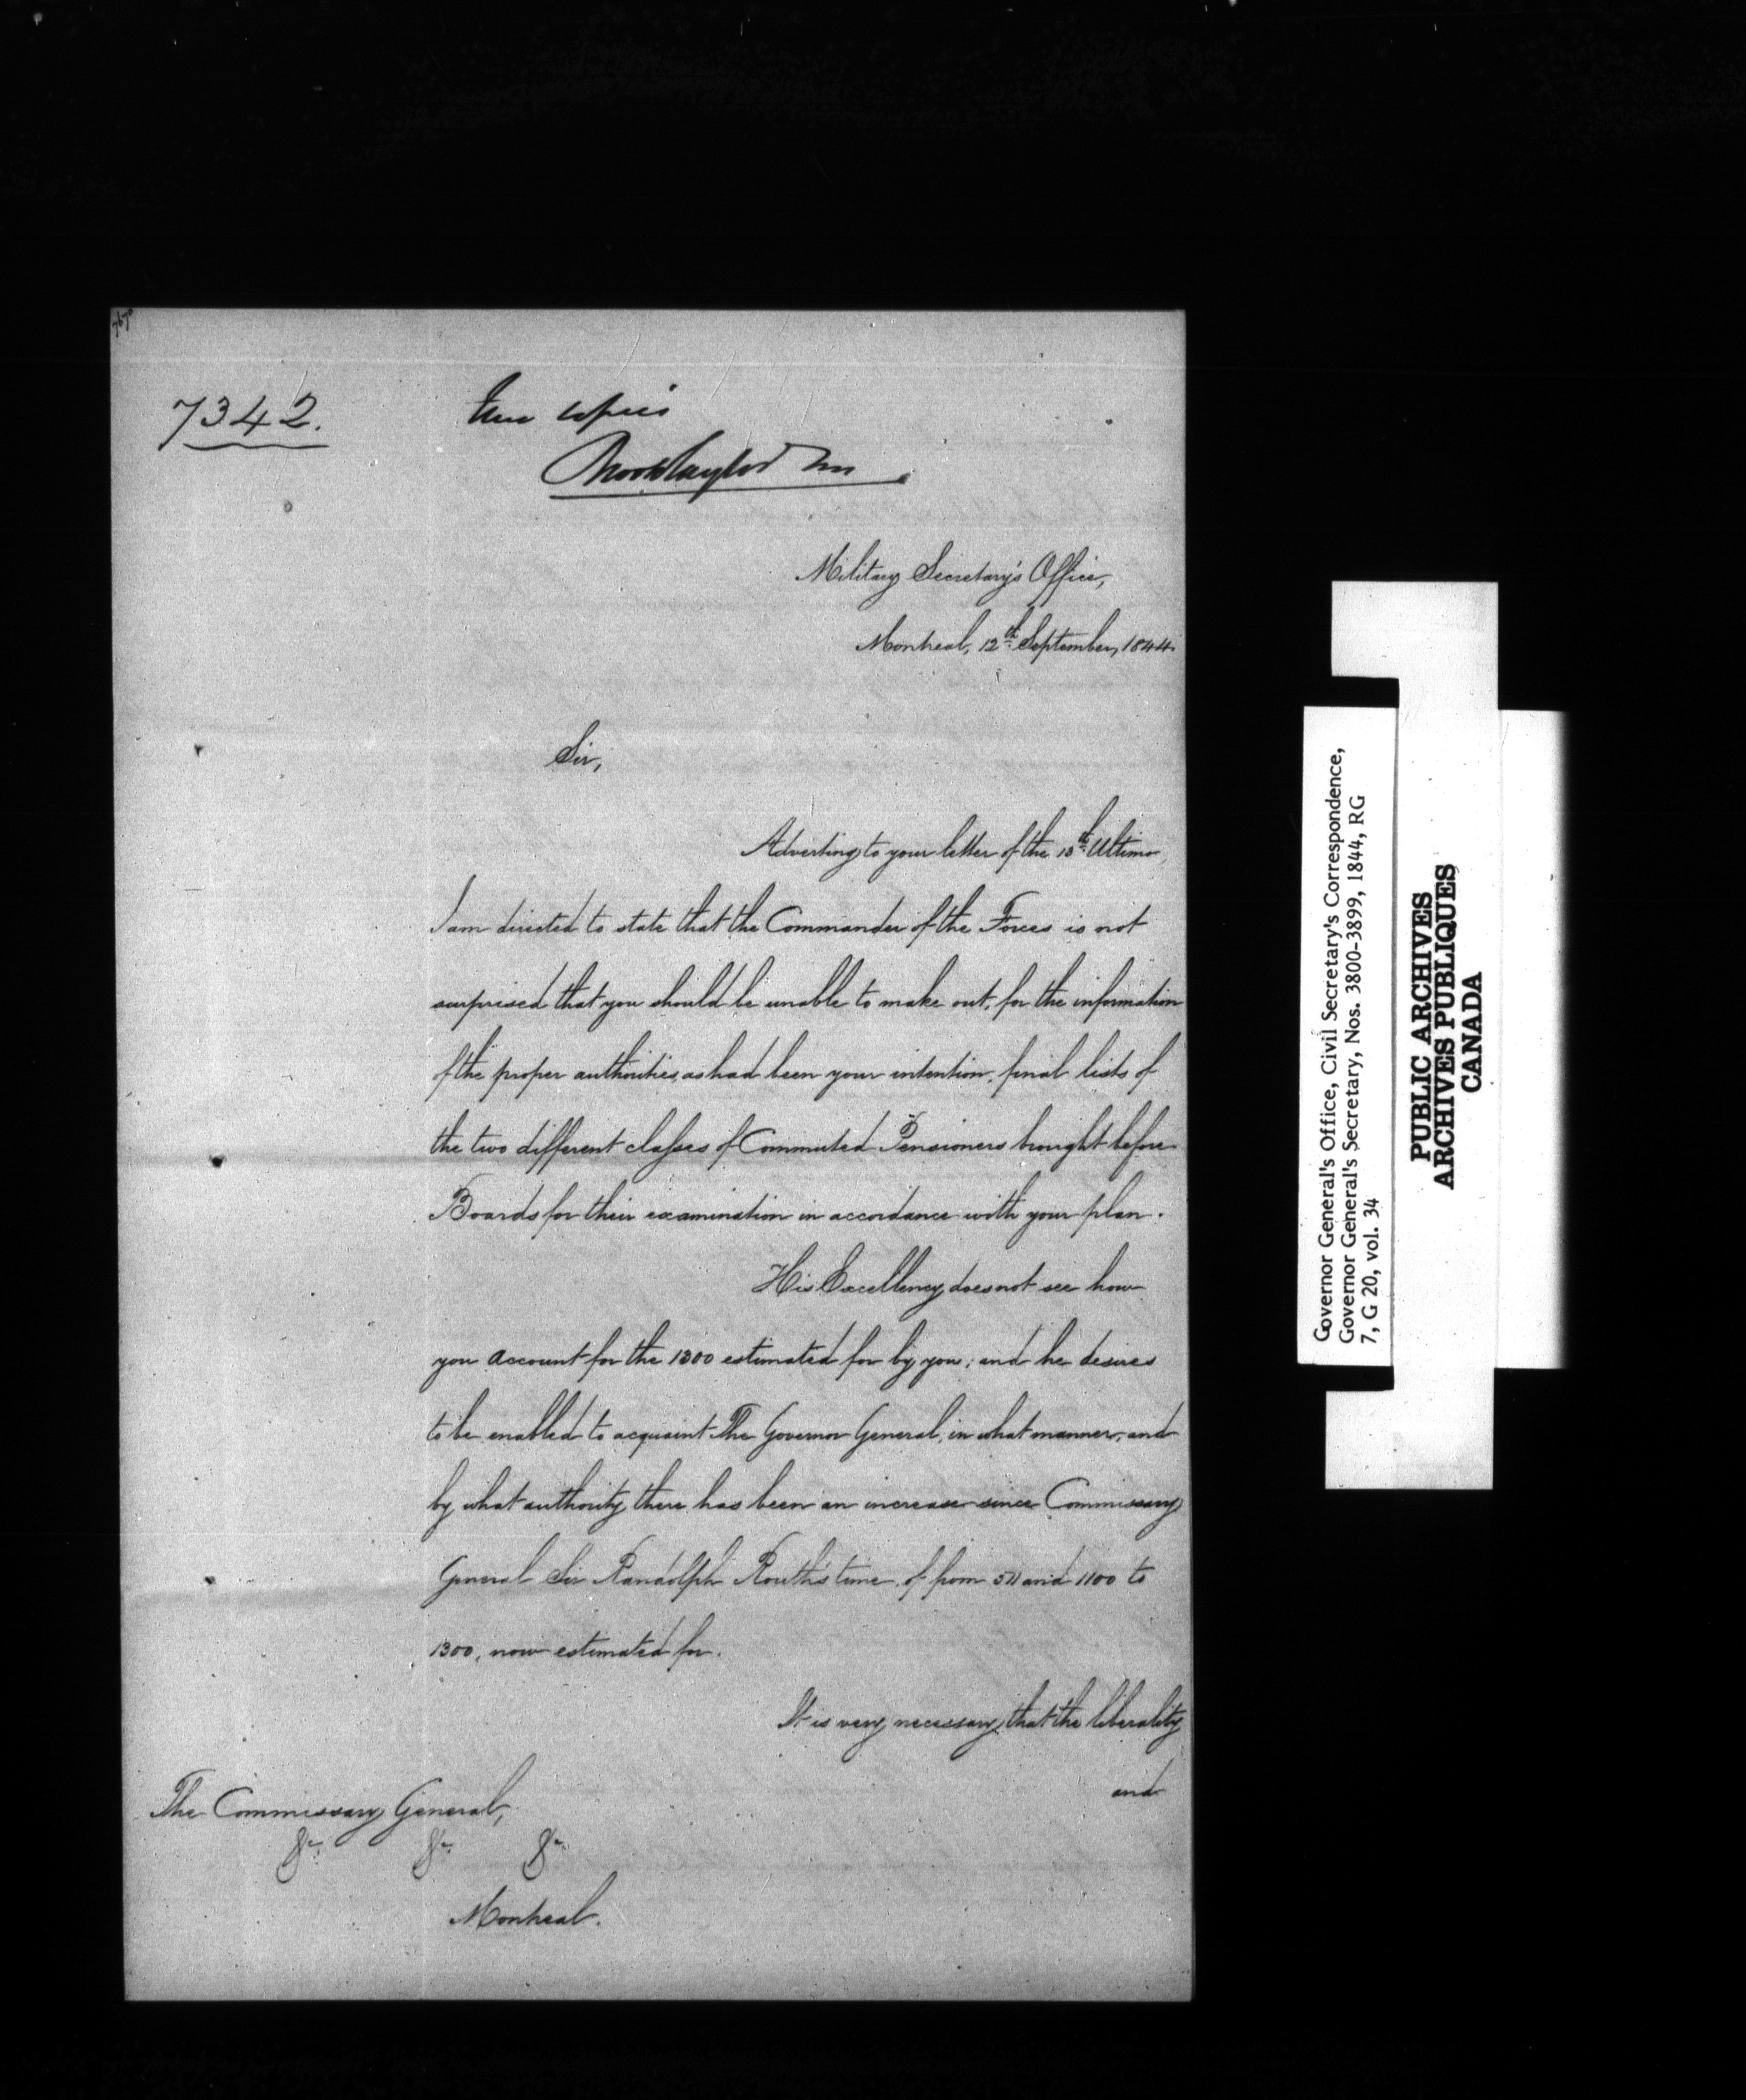 7670
7342.
True copies
Military Secretary's Office,
Montreal, 12th September, 1844.
Sir,
Adverting to your letter of the 13th Ultimo,
I am directed to state that the Commander of the Forces is not
surprised that you should be unable to make out, for the information
of the proper authorities, as had been your intention, final lists of
the two different classes of Commuted Pensioners brought before
Boards for their examination in accordance with your plan.
His Excellency does not see how
you account for the 1300 estimated for by you; and he desires
to be enabled to acquaint The Governor General, in what manner, and
by what authority there has been an increase since Commissary
General Sir Randolph Routh's time, of from 511 and 1100 to
1300, now estimated for.
It is very necessary, that the liberality
and
The Commissary General,
&c. &c. &c.
Montreal.
Governor General's Office, Civil Secretary's Correspondence,
Governor General's Secretary, Nos. 3800-3899, 1844, RG
7, G 20, vol. 34
PUBLIC ARCHIVES
ARCHIVES PUBLIQUES
CANADA